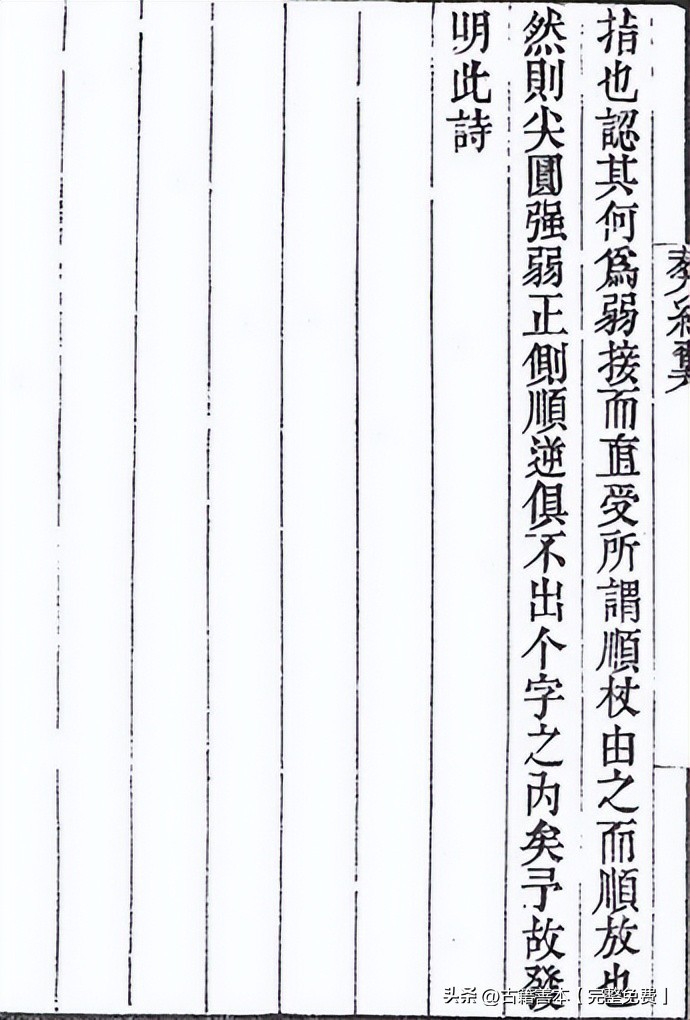 指也認其何爲弱接而直受所謂順杖由之而順放也
然則尖圓强弱正側順逆俱不出个字之內矣予故發
明此詩
头条 @古籍善本（完整免费）